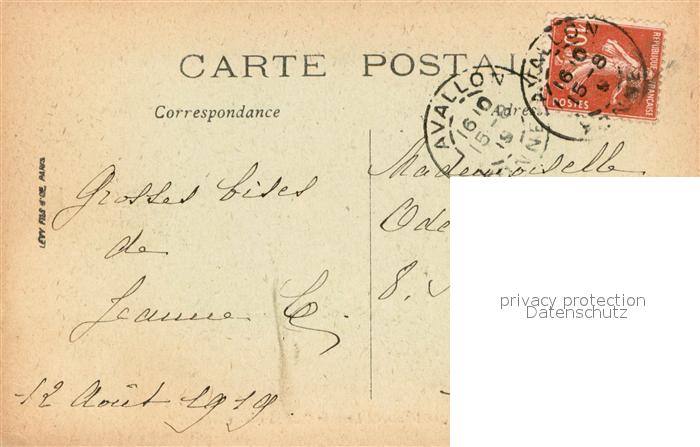 CARTE POSTALE
Correspondance
AVALLON
16 10
15 - 8
19
YONNE
AVALLON
16 10
15 - 8
19
YONNE
10
REPUBLIQUE FRANÇAISE
POSTES
LÉVY FILS & Cie, PARIS
Grosses bises
de
Jeanne
12 Août 1919.
Mademoiselle
Ode
8.
privacy protection
Datenschutz